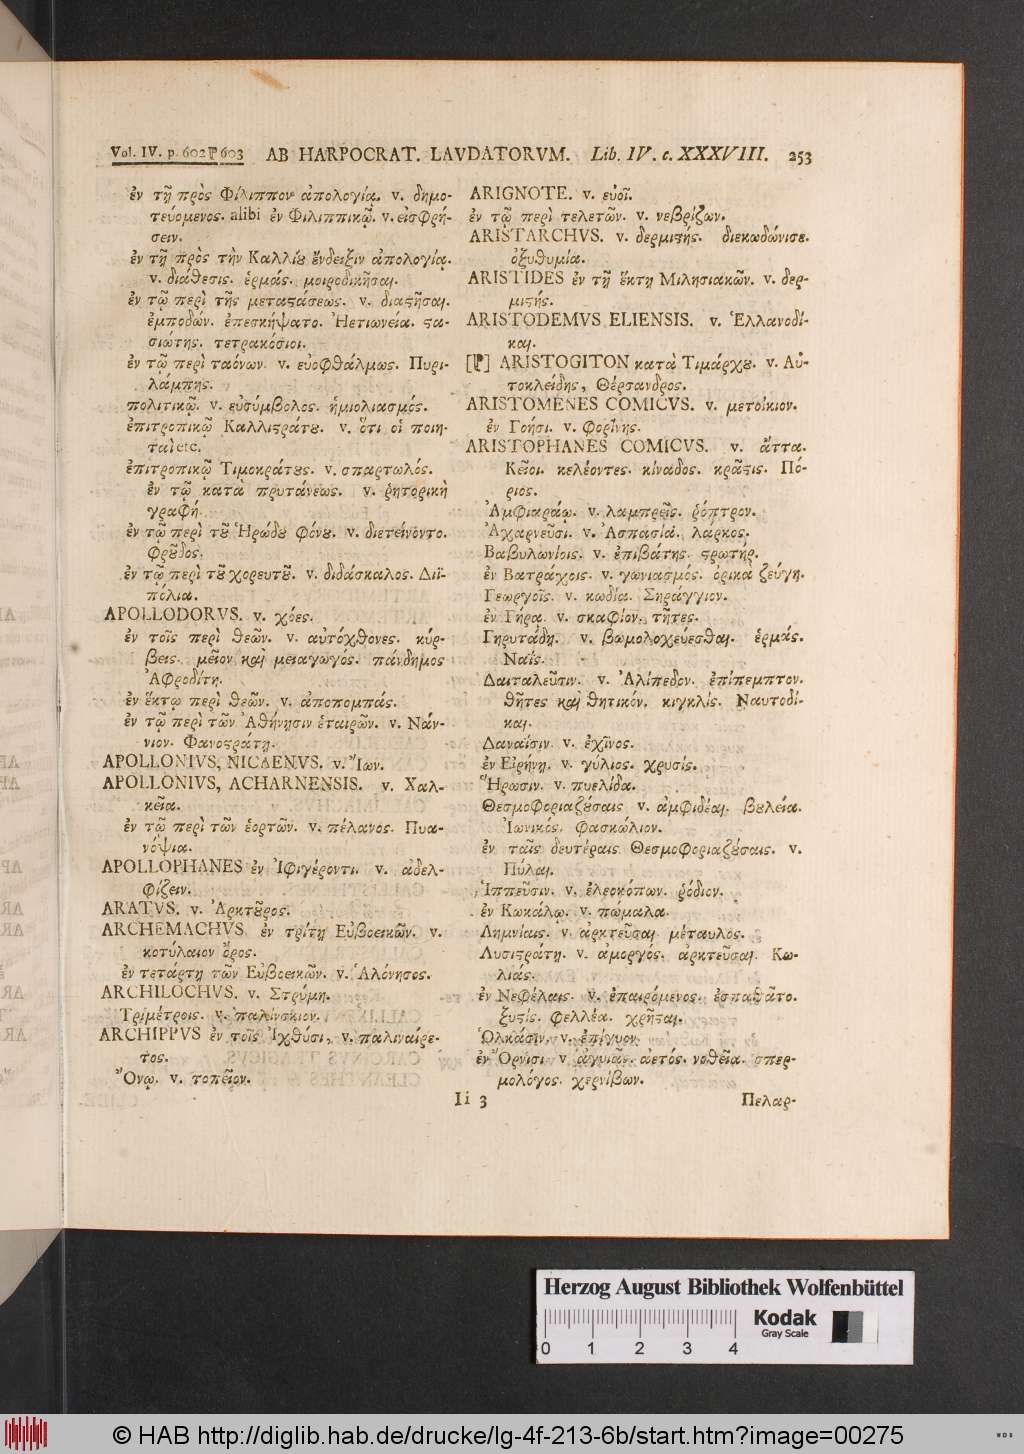 Vol. IV. p. 602 603 AB HARPOCRAT. LAVDATORVM. Lib. IV. c. XXXVIII. 253
ἐν τῇ πρὸς Φίλιππον ἀπολογίᾳ. v. δημο-
τευόμενος. alibi ἐν Φιλιππικῷ. v. εἰσφρή-
σειν.
ἐν τῇ πρὸς τὴν Καλλίου ἔνδειξιν ἀπολογίᾳ.
v. διάθεσις. ἑρμάς. μοιροδικῆσαι.
ἐν τῷ περὶ τῆς μεταστάσεως. v. διαστῆσαι.
ἐμποδών. ἐπεσκήψατο. Ἠετιωνεία. στα-
σιώτης. τετρακόσιοι.
ἐν τῷ περὶ ταόνων. v. εὐοφθάλμως. Πυρι-
λάμπης.
πολιτικῷ. v. εὐσύμβολος. ἡμιολιασμός.
ἐπιτροπικῷ Καλλιστράτου. v. ὅτι οἱ ποιη-
ταὶ etc.
ἐπιτροπικῷ Τιμοκράτους. v. σπαρτωλός.
ἐν τῷ κατὰ πρυτάνεως. v. ῥητορικὴ
γραφή.
ἐν τῷ περὶ τοῦ Ἡρώδου φόνου. v. διετείνοντο.
φροῦδος.
ἐν τῷ περὶ τοῦ χορευτοῦ. v. διδάσκαλος. Διϊ-
πόλια.
APOLLODORVS. v. χόες.
ἐν τοῖς περὶ θεῶν. v. αὐτόχθονες. κύρ-
βεις. μεῖον καὶ μειαγωγός. πάνδημος
Ἀφροδίτη.
ἐν ἕκτῳ περὶ θεῶν. v. ἀποπομπάς.
ἐν τῷ περὶ τῶν Ἀθήνησιν ἑταιρῶν. v. Νάν-
νιον. Φανοστράτη.
APOLLONIVS, NICAENVS. v. Ἴων.
APOLLONIVS, ACHARNENSIS. v. Χαλ-
κεῖα.
ἐν τῷ περὶ τῶν ἑορτῶν. v. πέλανος. Πυα-
νόψια.
APOLLOPHANES ἐν Ἰφιγέροντι. v. ἀδελ-
φίζειν.
ARATVS. v. Ἀρκτοῦρος.
ARCHEMACHVS ἐν τρίτῃ Εὐβοεικῶν. v.
κοτύλαιον ὄρος.
ἐν τετάρτῃ τῶν Εὐβοεικῶν. v. Ἁλόνησος.
ARCHILOCHVS. v. Στρύμη.
Τριμέτροις. v. παλίνσκιον.
ARCHIPPVS ἐν τοῖς Ἰχθύσι, v. παλιναίρε-
τος.
Ὄνῳ. v. τοπεῖον.
ARIGNOTE. v. εὐοῖ.
ἐν τῷ περὶ τελετῶν. v. νεβρίζων.
ARISTARCHVS. v. δερμιστής. διεκωδώνισε.
ὀξυθυμία.
ARISTIDES ἐν τῇ ἕκτῃ Μιλησιακῶν. v. δερ-
μιστής.
ARISTODEMVS ELIENSIS. v. Ἑλλανοδί-
και.
ARISTOGITON κατὰ Τιμάρχου. v. Αὐ-
τοκλείδης, Θέρσανδρος.
ARISTOMENES COMICVS. v. μετοίκιον.
ἐν Γοήσι. v. φορΐνης.
ARISTOPHANES COMICVS. v. ἄττα.
Κεῖοι. κελέοντες. κίναδος. κρᾶστις. Πό-
ριος.
Ἀμφιαράῳ. v. λαμπρεῖς. ῥόπτρον.
Ἀχαρνεῦσι. v. Ἀσπασία. λάρκος.
Βαβυλωνίοις. v. ἐπιβάτης. στρωτήρ.
ἐν Βατράχοις. v. γωνιασμός. ὀρικὰ ζεύγη.
Γεωργοῖς. v. κωδία. Σηράγγιον.
ἐν Γήρᾳ. v. σκαφίον. τῆτες.
Γηρυτάδῃ. v. βωμολοχεύεσθαι. ἑρμάς.
Ναΐς.
Δαιταλεῦσιν. v. Ἀλίπεδον. ἐπίπεμπτον.
θῆτες καὶ θητικόν. κιγκλίς. Ναυτοδί-
και.
Δαναΐσιν. v. ἐχῖνος.
ἐν Εἰρήνῃ. v. γύλιος. χρυσίς.
Ἥρωσιν. v. πυελίδα.
Θεσμοφοριαζούσαις v. ἀμφιδέαι. βουλεία.
Ἰωνικός. φασκώλιον.
ἐν ταῖς δευτέραις Θεσμοφοριαζούσαις. v.
Πύλαι.
Ἱππεῦσιν. v. ἐλεοκόπων. ῥόδιον.
ἐν Κωκάλῳ. v. πώμαλα.
Λημνίαις. v. ἀρκτεῦσαι. μέταυλος.
Λυσιστράτῃ. v. ἀμοργός. ἀρκτεῦσαι. Κω-
λιάς.
ἐν Νεφέλαις. v. ἐπαιρόμενος. ἐσπαθᾶτο.
ζυστίς. φελλέα. χρῆσται.
Ὁλκάσιν. v. ἐπίγυον.
ἐν Ὄρνισι v. ἀγυιᾶς. ἀετός. νοθεῖα. σπερ-
μολόγος. χερνίβων.
Ii 3 Πελαρ-
Herzog August Bibliothek Wolfenbüttel
Kodak
Gray Scale
0 1 2 3 4
© HAB http://diglib.hab.de/drucke/lg-4f-213-6b/start.htm?image=00275